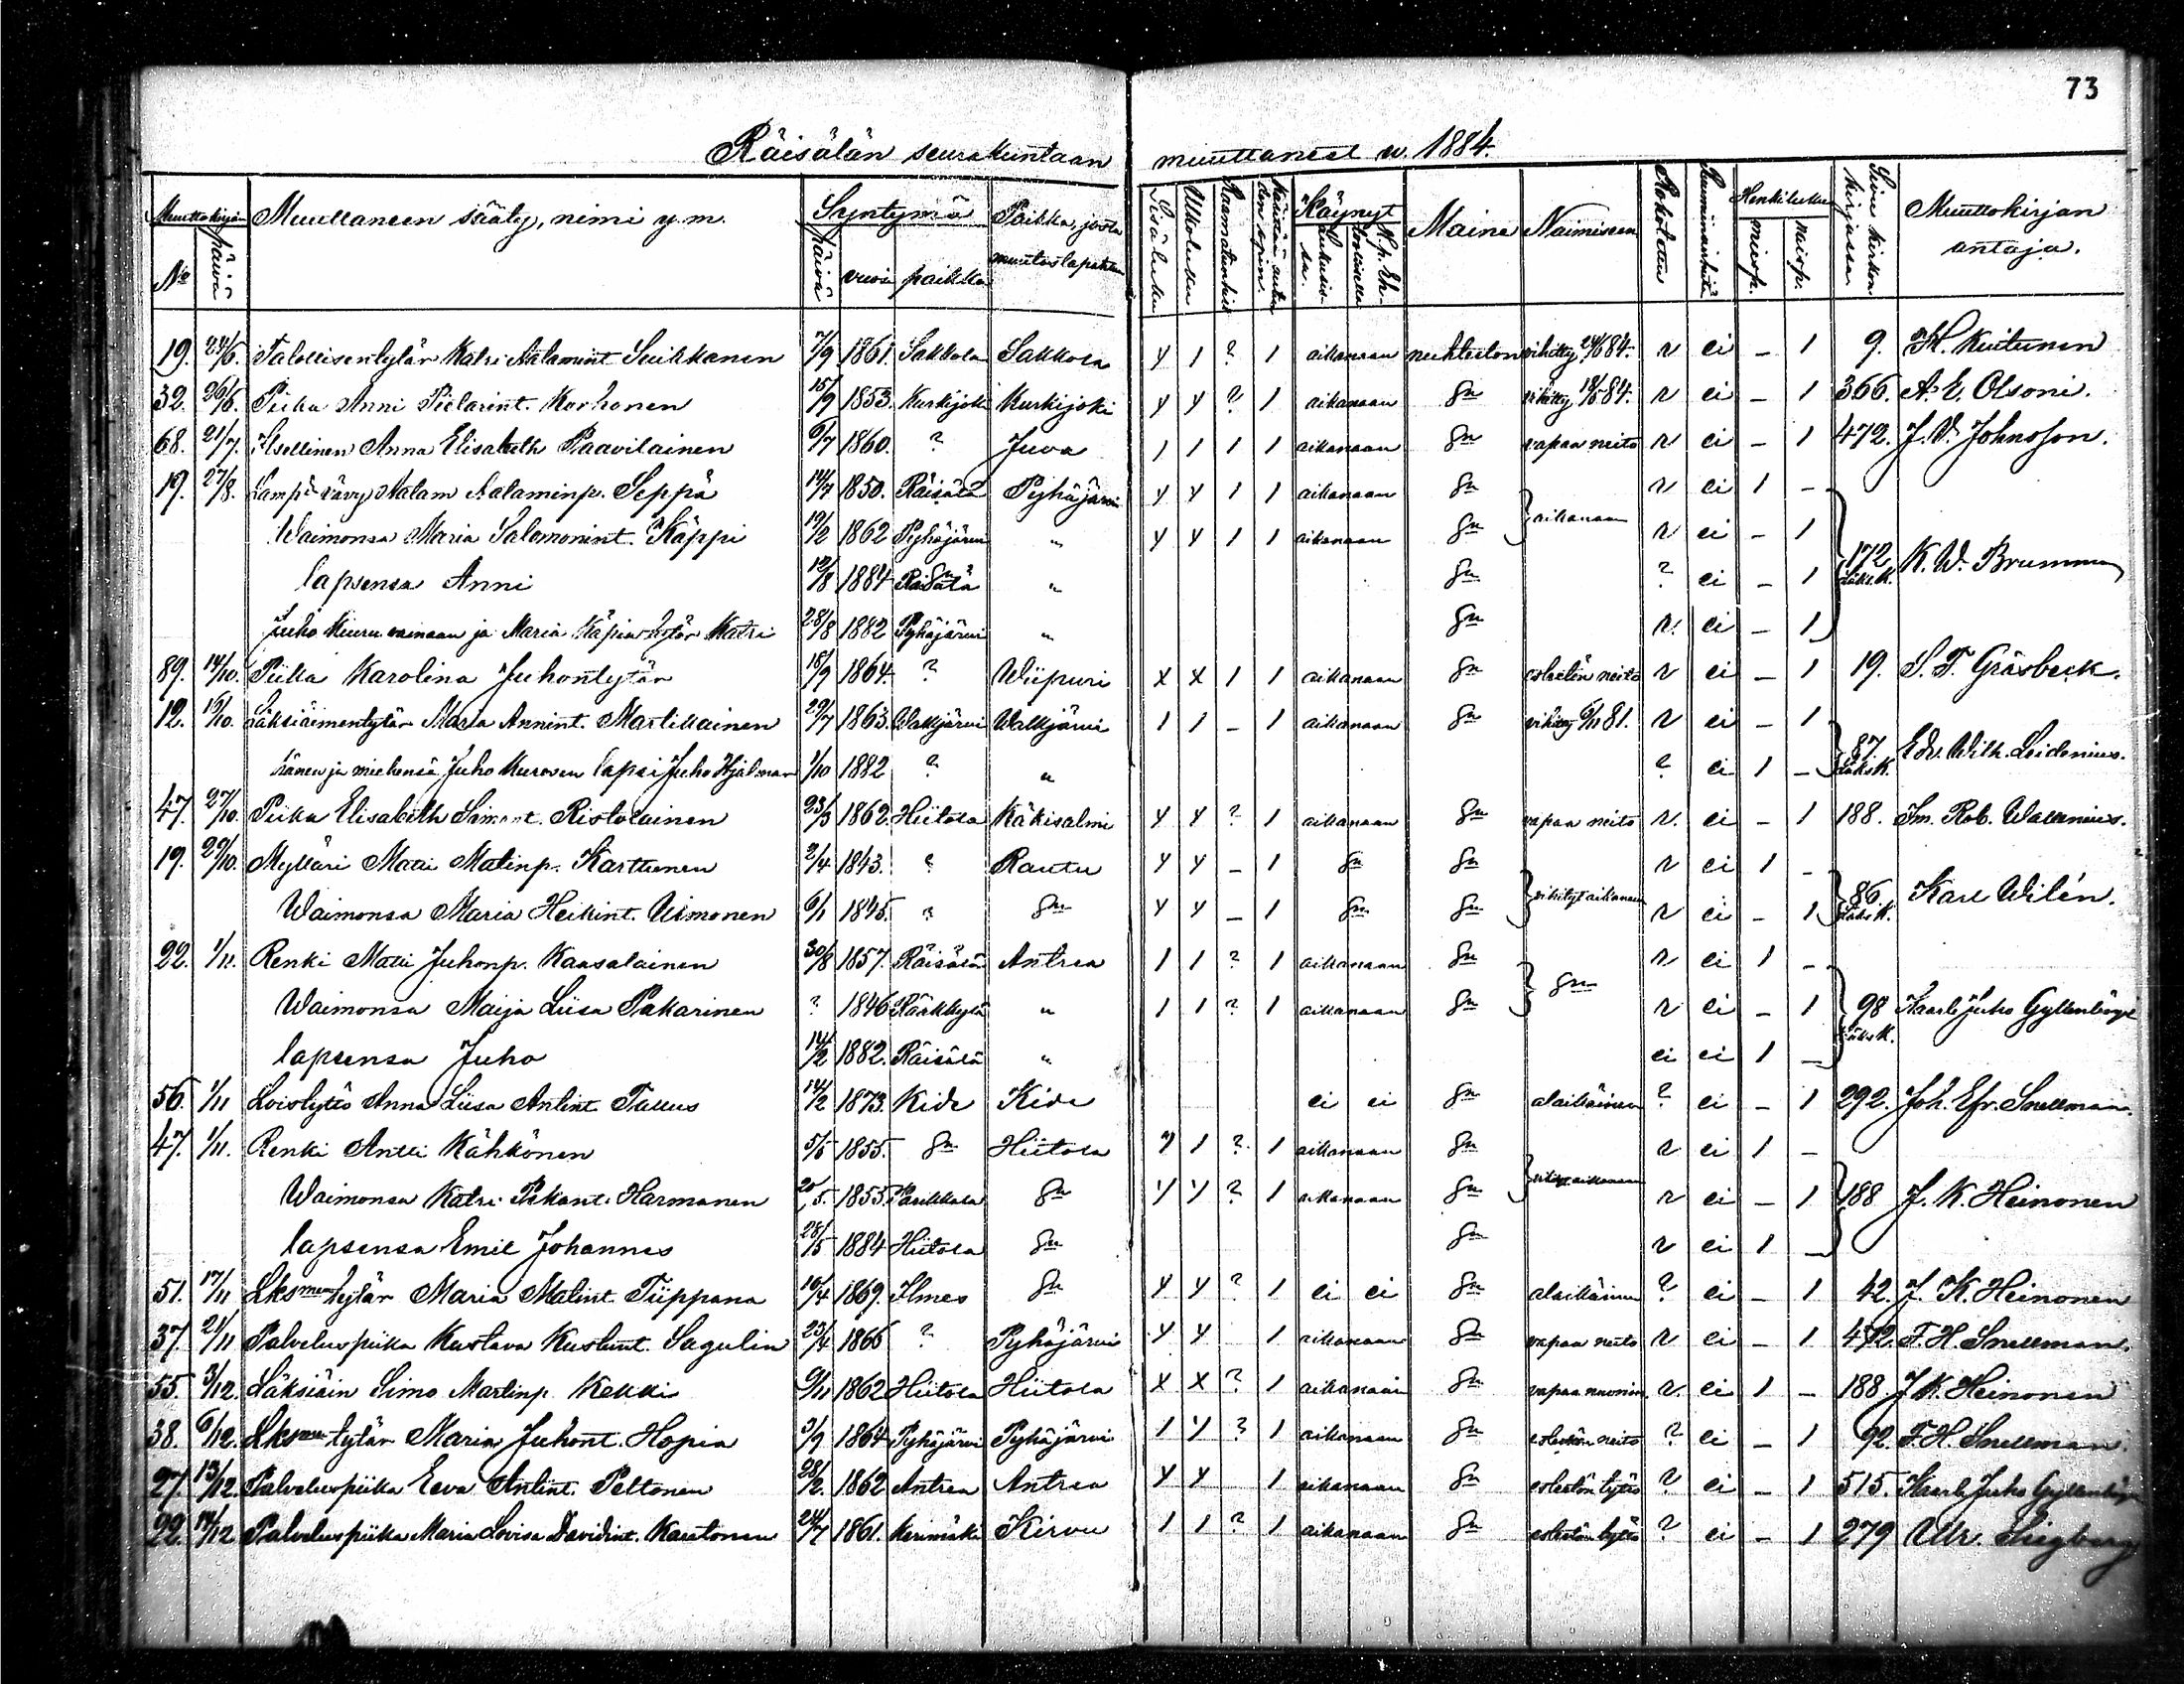 73
Räisälän seurakuntaan muuttaneet w. 1884.
Muuttokirjan Muuttaneen sääty, nimi y.m. Syntymä Paikka, josta muutos tapahtuu Sisäluku Ulkoluku Käynyt Maine Naimiseen Rokotettu Henkiluku Sivu kirkonkirjassa Muuttokirjan antaja.
No päivä päivä vuosi paikka miesp. naisp.
19. 24/6. Talollisentytär Katri Aatamint. Suikkanen 7/9 1861. Sakkola Sakkola y 1 ? 1 aikanaan nuhteeton vihitty 24/6 84. r ei – 1 9. H. Kuitunen
32. 26/6. Piika Anni Pietarint. Korhonen 15/9 1853. Kurkijoki Kurkijoki y y ? 1 aikanaan Sn vihitty 18/5 84. r ei – 1 366. A. E. Olsoni.
68. 21/7. Itsellinen Anna Elisabeth Paavilainen 6/7 1860. ? Juva 1 1 1 1 aikanaan Sn vapaa neito r ei – 1 472. J. V. Johnsson.
19. 27/8. Lamp. vävy Aatam Aataminp. Seppä 14/7 1850. Räisälä Pyhäjärvi y y 1 1 aikanaan Sn aikanaan r ei 1 –
Waimonsa Maria Salomonint. Käppi 19/2 1862 Pyhäjärvi " y y 1 1 aikanaan Sn r ei – 1
lapsensa Anni 12/8 1884 Räisälä " Sn ? ei – 1 172 K. W. Brummer
Juho Kiuru vainaan ja Maria Käpin tytär Katri 28/8 1882 Pyhäjärvi " Sn r. ei – 1
89. 14/10. Piika Karolina Juhontytär 18/9 1864. ? Wiipuri x x 1 1 aikanaan Sn esteetön neito r ei – 1 19. S. F. Gräsbeck.
12. 16/10. Läksiäimentytär Maria Annint. Martikainen 29/7 1863. Walkjärvi Walkjärvi 1 1 – 1 aikanaan Sn vihitty 6/11 81. r ei – 1
hänen ja miehensä Juho Kurosen lapsi Juho Hjalmar 1/10 1882 ? " ? ei 1 – 87 LäksK. Edv. Wilh. Leidenius.
47. 27/10. Piika Elisabeth Simont. Ristolainen 23/3 1862. Hiitola Käkisalmi y y ? 1 aikanaan Sn vapaa neito r. ei – 1 188. Im. Rob. Wallenius.
19. 29/10. Mylläri Matti Matinp. Karttunen 2/4 1843. ? Rautu y y – 1 Sn Sn vihityt aikanaan r ei 1 –
Waimonsa Maria Heikint. Uimonen 6/1 1845. " Sn y y – 1 Sn Sn r ei – 1 86. LäksK. Karl Wilén.
22. 1/11. Renki Matti Juhonp. Kaasalainen 30/8 1857. Räisälä Antrea 1 1 ? 1 aikanaan Sn Sn r ei 1 –
Waimonsa Maija Liisa Pakarinen ? 1846 Pärkkylä " 1 1 ? 1 aikanaan Sn r ei – 1 98 LäksK. Kaarle Juho Gyllenbögel
lapsensa Juho 14/2 1882. Räisälä " ei ei 1 –
56. 1/11 Loistyttö Anna Liisa Antint. Tallus 14/2 1873. Kide Kide ei ei Sn alaikäinen ? ei – 1 292. Joh. Efr. Snellman.
47. 1/11. Renki Antti Kähkönen 5/5 1855. Sn Hiitola y 1 ? 1 aikanaan Sn vihityt aikanaan r ei 1 –
Waimonsa Katri Pekant. Harmanen 20/5. 1855. Parikkala Sn y y ? 1 aikanaan Sn r ei – 1 188 J. K. Heinonen
lapsensa Emil Johannes 28/5 1884 Hiitola Sn Sn r ei 1 –
51. 17/11 Lksmentytär Maria Matint. Tiippana 10/4 1869. Ilmes Sn y y ? 1 ei ei Sn alaikäinen ? ei – 1 42. J. K. Heinonen
37. 21/11 Palveluspiika Kustava Kustint. Sagulin 23/4 1866 ? Pyhäjärvi y y 1 aikanaan Sn vapaa neito r ei – 1 472. F. H. Snellman.
55. 3/12. Läksiäin Simo Martinp. Kekki 9/11 1862 Hiitola Hiitola x x ? 1 aikanaan Sn vapaa nuorim. r. ei 1 – 188. J. K. Heinonen
38. 6/12. Lksmentytär Maria Juhont. Hopia 3/9 1864 Pyhäjärvi Pyhäjärvi 1 y ? 1 aikanaan Sn esteetön neito ? ei – 1 92. F. H. Snellman.
27. 13/12. Palveluspiika Eeva Antint. Peltonen 28/2. 1862 Antrea Antrea y y 1 aikanaan Sn esteetön tyttö ? ei – 1 515. Kaarle Juho Gyllenbögel
22. 14/12 Palveluspiika Maria Lovisa Davidint. Kautonen 24/7 1861. Kerimäki Kirvu 1 1 ? 1 aikanaan Sn esteetön tyttö ? ei – 1 279 Ulr. Siegberg